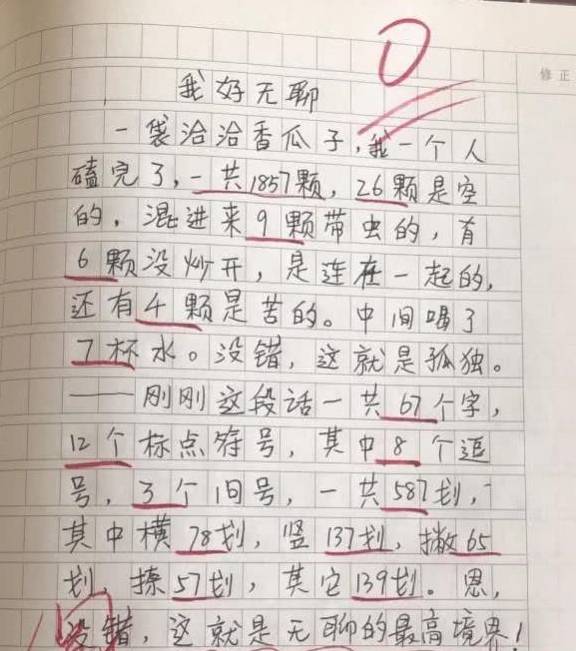 0
修正
我好无聊
一袋洽洽香瓜子,我一个人
磕完了,一共1857颗,26颗是空
的,混进来9颗带虫的,有
6颗没炒开,是连在一起的,
还有4颗是苦的。中间喝了
7杯水。没错,这就是孤独。
——刚刚这段话一共67个字,
12个标点符号,其中8个逗
号,3个旧号,一共587划,
其中横78划,竖137划,撇65
划,捺57划,其它139划。恩,
没错,这就是无聊的最高境界!